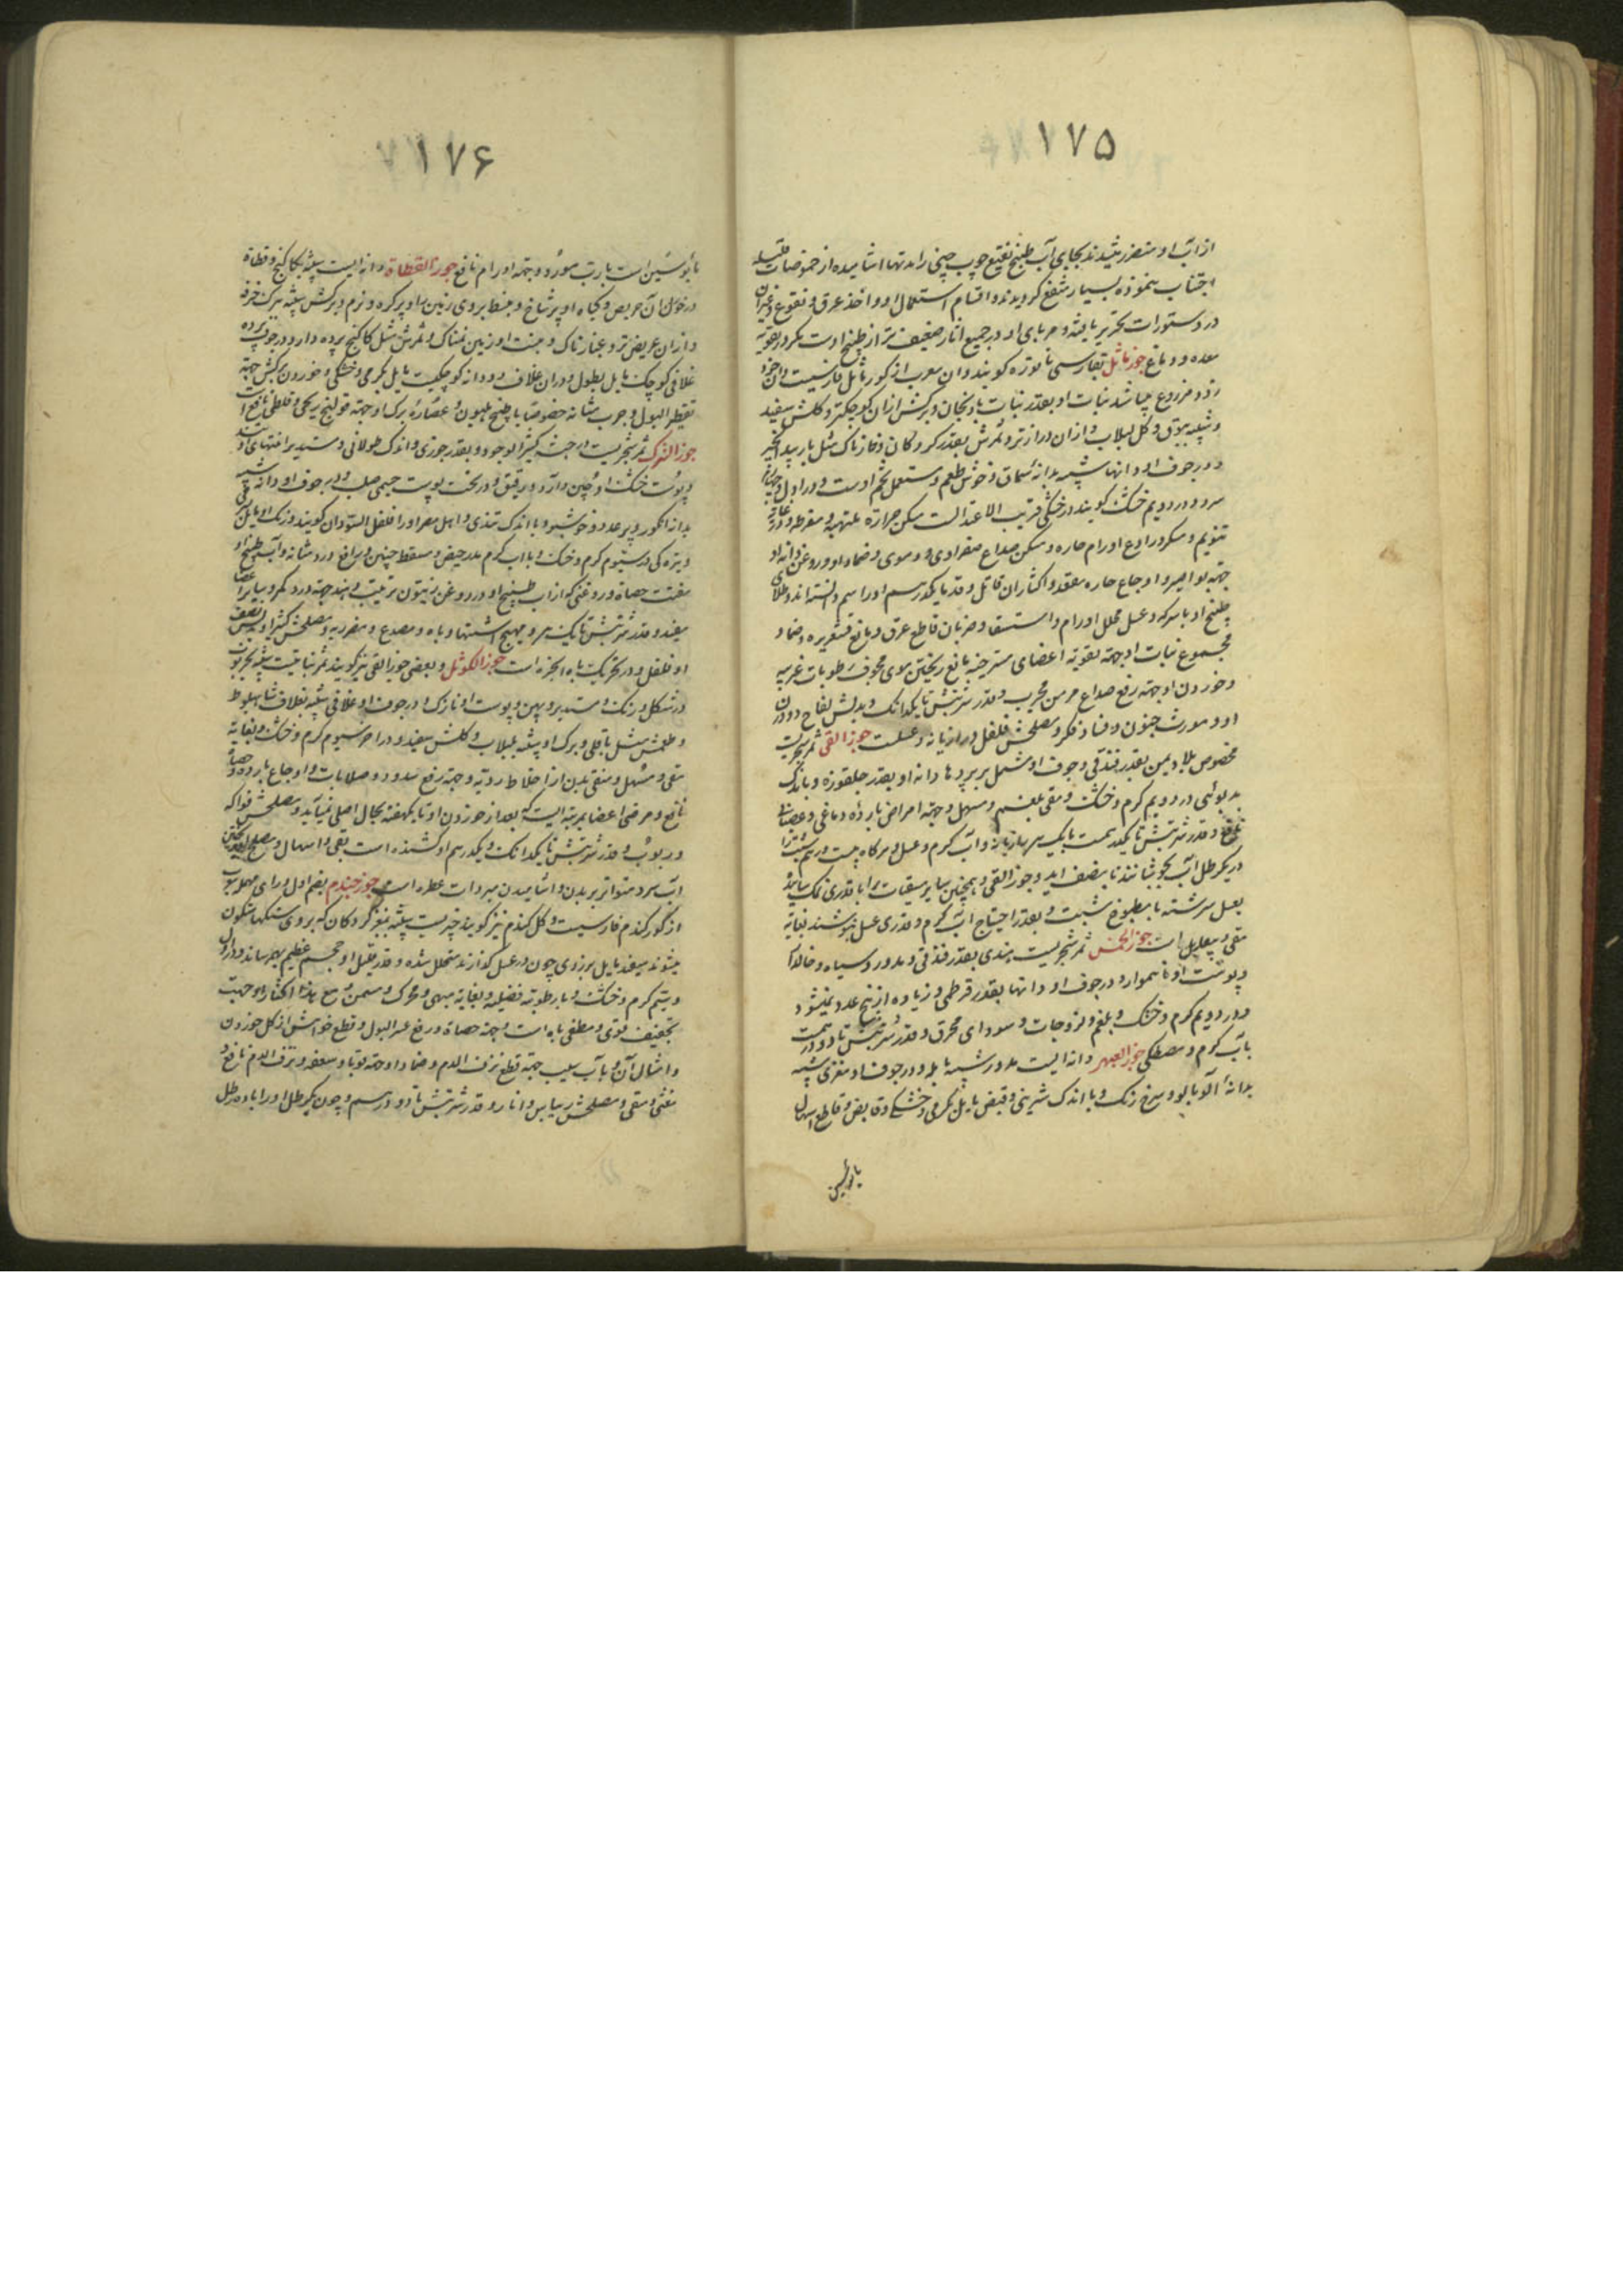 ۱۷۵
از آب او متضرر نشدند بجای آب طبیخ نقیع چوب چینی را مدتها اشامیده از حموضات
اجتناب نموده بسیار منتفع کردیدند و اقسام استعمال او و اخذ عرق و نقوع و غیر آن
در دستورات تحریر یافته و مربای او در جمیع آثار ضعیف تر از طبیخ اوست مکر در تقویة
معده و دماغ جوز ماثل بفارسی تاتوره کویند و آن معرب از کوز ماثل فارسیست و آن خود
رو و مزروع میباشد نبات او بقدر نبات بادنجان و برکش از آن کوچکتر و کلش سفید
و شبیه ببوق و کل لبلاب و از آن درازتر و ثمرش بقدر کردکان و خارناک مثل بار بید انجیر
و در جوف او دانها شبیه بدانه سماق و خوش طعم و مستعمل تخم اوست و در اول
سرد و در دویم خشک کویند در خشکی قریب الاعتدالست مسکن حرارة ملتهبه و مفرطه و
تنویم و مسکر و رادع اورام حاره و مسکن صداع صفراوی و دموی و ضماد او و روغن دانه او
جهة بواسیر و اوجاع حاره مقعد و اکثار آن قاتل و قدر یکدرسم او را سم دانسته اند و طلای
طبیخ او با سرکه و عسل محلل اورام و استسقا و ضربان قاطع عرق و مانع قشعریره و ضماد
مجموع نبات او جهة تقویة اعضای مسترخیه مانع ریختن موی مجوف رطوبات غریبه
و خوردن او جهة رفع صداع مزمن مجرب و قدر شربتش تا یکدانک و بدلش لفاح و
او و مورث جنون و فساد فکر و مصلحش فلفل و رازیانه و عسلست جوز القی ثمر شجریست
مخصوص بلاد یمن بقدر فندقی و جوف او مشتمل بر پردها دانه او بقدر جلغوزه و با اندک
بدبوئی در دویم کرم و خشک و مقی بلغم و مسهل و جهة امراض بارده دماغی و عصبانی
نافع و قدر شربتش تا یکدرهمست با یکسیر رازیانه و آب کرم و عسل و هرکاه بیست درهم شبت را
در یکرطل آب بجوشانند تا بنصف آید و جوز القی و همچنین سایر مقیات را با قدری نمک سائیده
بعسل سرشته با مطبوخ شبت و بقدر احتیاج آب کرم و قدری عسل بنوشند بغایة
مقی و بیعدیل است جوز الخمس ثمر شجریست هندی بقدر فندقی و مدور و سیاه و
و پوست او ناهموار و در جوف او دانها بقدر قرطمی و زیاده از پنج عدد نمیشود
و در دویم کرم و خشک و بلغم و لزوجات و سودای محرق و قدر شربتش تا دو درهمست
با آب کرم و مصطکی جوز العبهر دانه ایست مدور شبیه باملد و در جوف او مغزی شبیه
بدانه آلوبالو و سرخ رنک و با اندک شیرینی و قبض مایل بکرمی و خشکی و قابض و قاطع اسهال
با بوئسین
۱۷۶
با بوئسین است با رب مورد و جهة اورام نافع جوز القطاة دانه ایست شبیه بکاکنج و قطاة
در خوان آن حریص و کیاه او پرشاخ و منبسط بروی زمین و او پر کره و نرم و برکش شبیه ببرک خرفه
و از آن عریض تر و غبارناک و منبت او زمین نمناک و ثمرش مثل کاکنج پرده دار و در جوف پرده
غلافی کوچک مایل بطول و در آن غلاف دو دانه کوچکیست مایل بکرمی و خشکی و خوردن برکش جهة
تقطیر البول و جرب مثانه خصوصا با طبیخ هلیون و عصاره برک او جهة قولنج ریحی و بلغمی نافع است
جوز الشرک ثمر شجریست در حبشه کثیر الوجود و بقدر جوزی و اندک طولانی و مستدیر
و پوست خشک او چین دار و رقیق و در تحت پوست جسمی صلب و در جوف او دانه شبیه
بدانه انکور و پر عدد و خوشبو و با اندک تندی و اهل مصر او را فلفل السودان کویند و رنک او مایل
و تیره کی در سیوم کرم و خشک و با آب کرم مدر حیض و مسقط جنین و رافع درد مثانه و آب طبیخ او
مفتت حصاة و روغنی که از آب طبیخ او و روغن زیتون ترتیب دهند جهة درد کمر و سایر اعضا
مفید و قدر شربتش تا یک درهم و مهیج اشتها و باه و مصدع و مضر ریه و مصلحش کثیرا و بدلش نصف
او فلفل و در تحریک باه انجره است جوز الکوثل و بعضی جوز القی نیز کویند ثمر نباتیست شبیه
در شکل و رنک و مستدیر و پهن و پوست او نازک و در جوف او غلافی شبیه بغلاف شاه بلوط
و طعمش مثل باقلی و برک او شبیه بلبلاب و کلش سفید و در آخر سیوم کرم و خشک و بغایة
مقی و مسهل و منقی بدن از اخلاط ردیه و جهة رفع سدد و صلابات و اوجاع بارده
نافع و مرخی اعضا بمرتبه ایست که بعد از خوردن او تا یکهفته بحال اصلی نمیآید و مصلحش فواکه
و ربوب و قدر شربتش تا یکدانک و یکدرسم او کشنده است بقی و اسهال و مصلح او
آب سرد متواتر بر بدن و اشامیدن مبردات عطره است جوز جندم بضم اول و رای مهمله معرب
از کوز کندم فارسیست و کل کندم نیز کویند چیزیست شبیه بمغز کردکان که بر روی سنکها متکون
میشوند سفید مایل بزردی چون در عسل کذارند متحلل شده و قدر قلیل او حجم عظیم بهم رساند و در اول
دویم کرم و خشک و با رطوبة فضلیه و بغایة مبهی و محرک و مسمن و مع هذا اکثار او جهت
تجفیف قوی و مطفی باه است و جهة حصاة و رفع عسر البول و قطع خواهش از کل خوردن
و امثال آن و با آب سیب جهة قطع نزف الدم و ضماد او جهة قوبا و سعفه و نزف الدم نافع و
مغثی و مقی و مصلحش ریباس و انار و قدر شربتش تا دو درسم و چون یکرطل او را با ده رطل